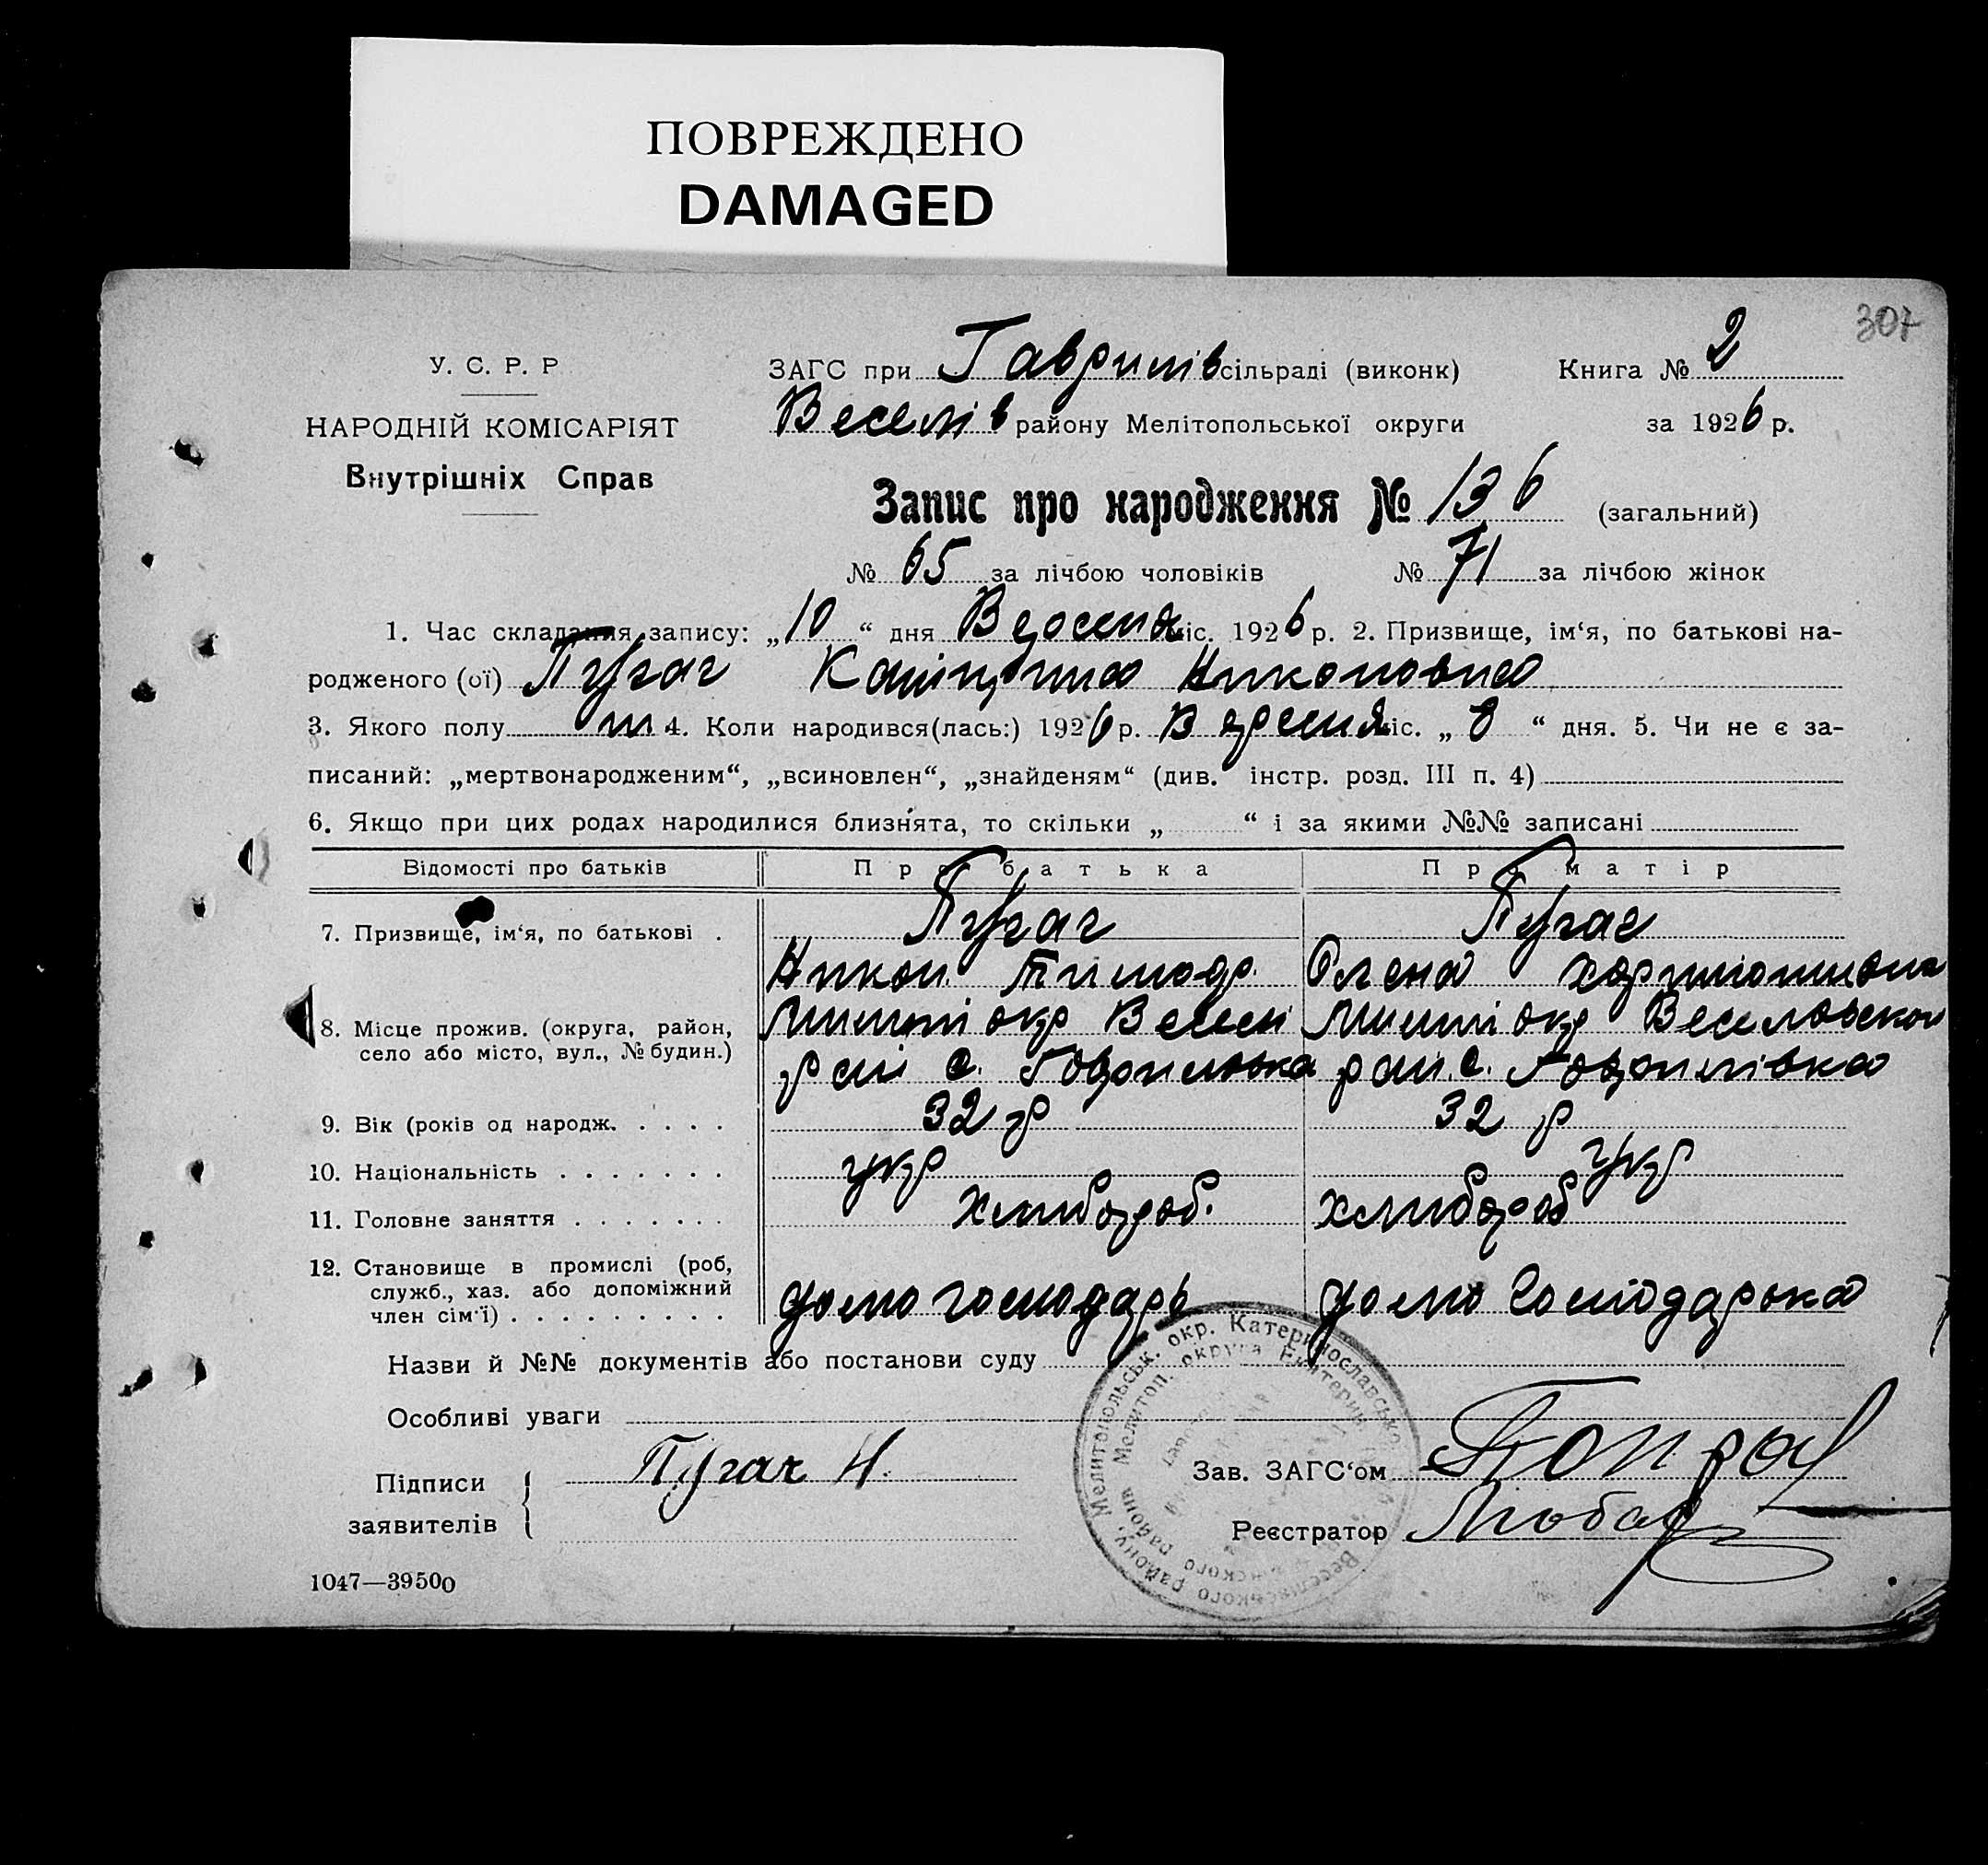 307
ПОВРЕЖДЕНО
DAMAGED
У. С. Р. Р
НАРОДНІЙ КОМІСАРІЯТ
Внутрішніх Справ
ЗАГС при Гаврилів сільраді (виконк) Книга № 2
Веселів району Мелітопольської округи за 1926 р.
Запис про народження № 136 (загальний)
№ 65 за лічбою чоловіків № 71 за лічбою жінок
1. Час складання запису: „10“ дня Вересня міс. 1926 р. 2. Призвище, ім‘я, по батькові на-
родженого (ої) Пугач Катірина Никоновна
3. Якого полу 4. Коли народився(лась:) 1926 р. Вересня міс. „8“ дня. 5. Чи не є за-
писаний: „мертвонародженим“, „всиновлен“, „знайденям“ (див. інстр. розд. III п. 4)
6. Якщо при цих родах народилися близнята, то скільки „ “ і за якими №№ записані
Відомості про батьків Про батька Про матір
7. Призвище, ім‘я, по батькові . Пугач Пугач
Никон Тимофе Олена
8. Місце прожив. (округа, район, село або місто, вул., № будин.) Мелит окр Весел Мелит окр Веселовской
рай с. Гаврилвка рай. с. Гаврилівка
9. Вік (років од народж. . . . . 32 р 32 р
10. Національність . . . . . . . укр укр
11. Головне заняття . . . . . . . хлибороб. хлибороб
12. Становище в промислі (роб,
служб., хаз. або допоміжний
член сім‘ї) . . . . . . . . . домогосподарь домо Господарька
Назви й №№ документів або постанови суду
Особливі уваги
Підписи заявителів Пугач Н.
Зав. ЗАГС‘ом
Реєстратор
Веселівського району, Мелитопольськ. окр. Катеринославсько
района Мелитоп. округа Екатерин
1047—39500